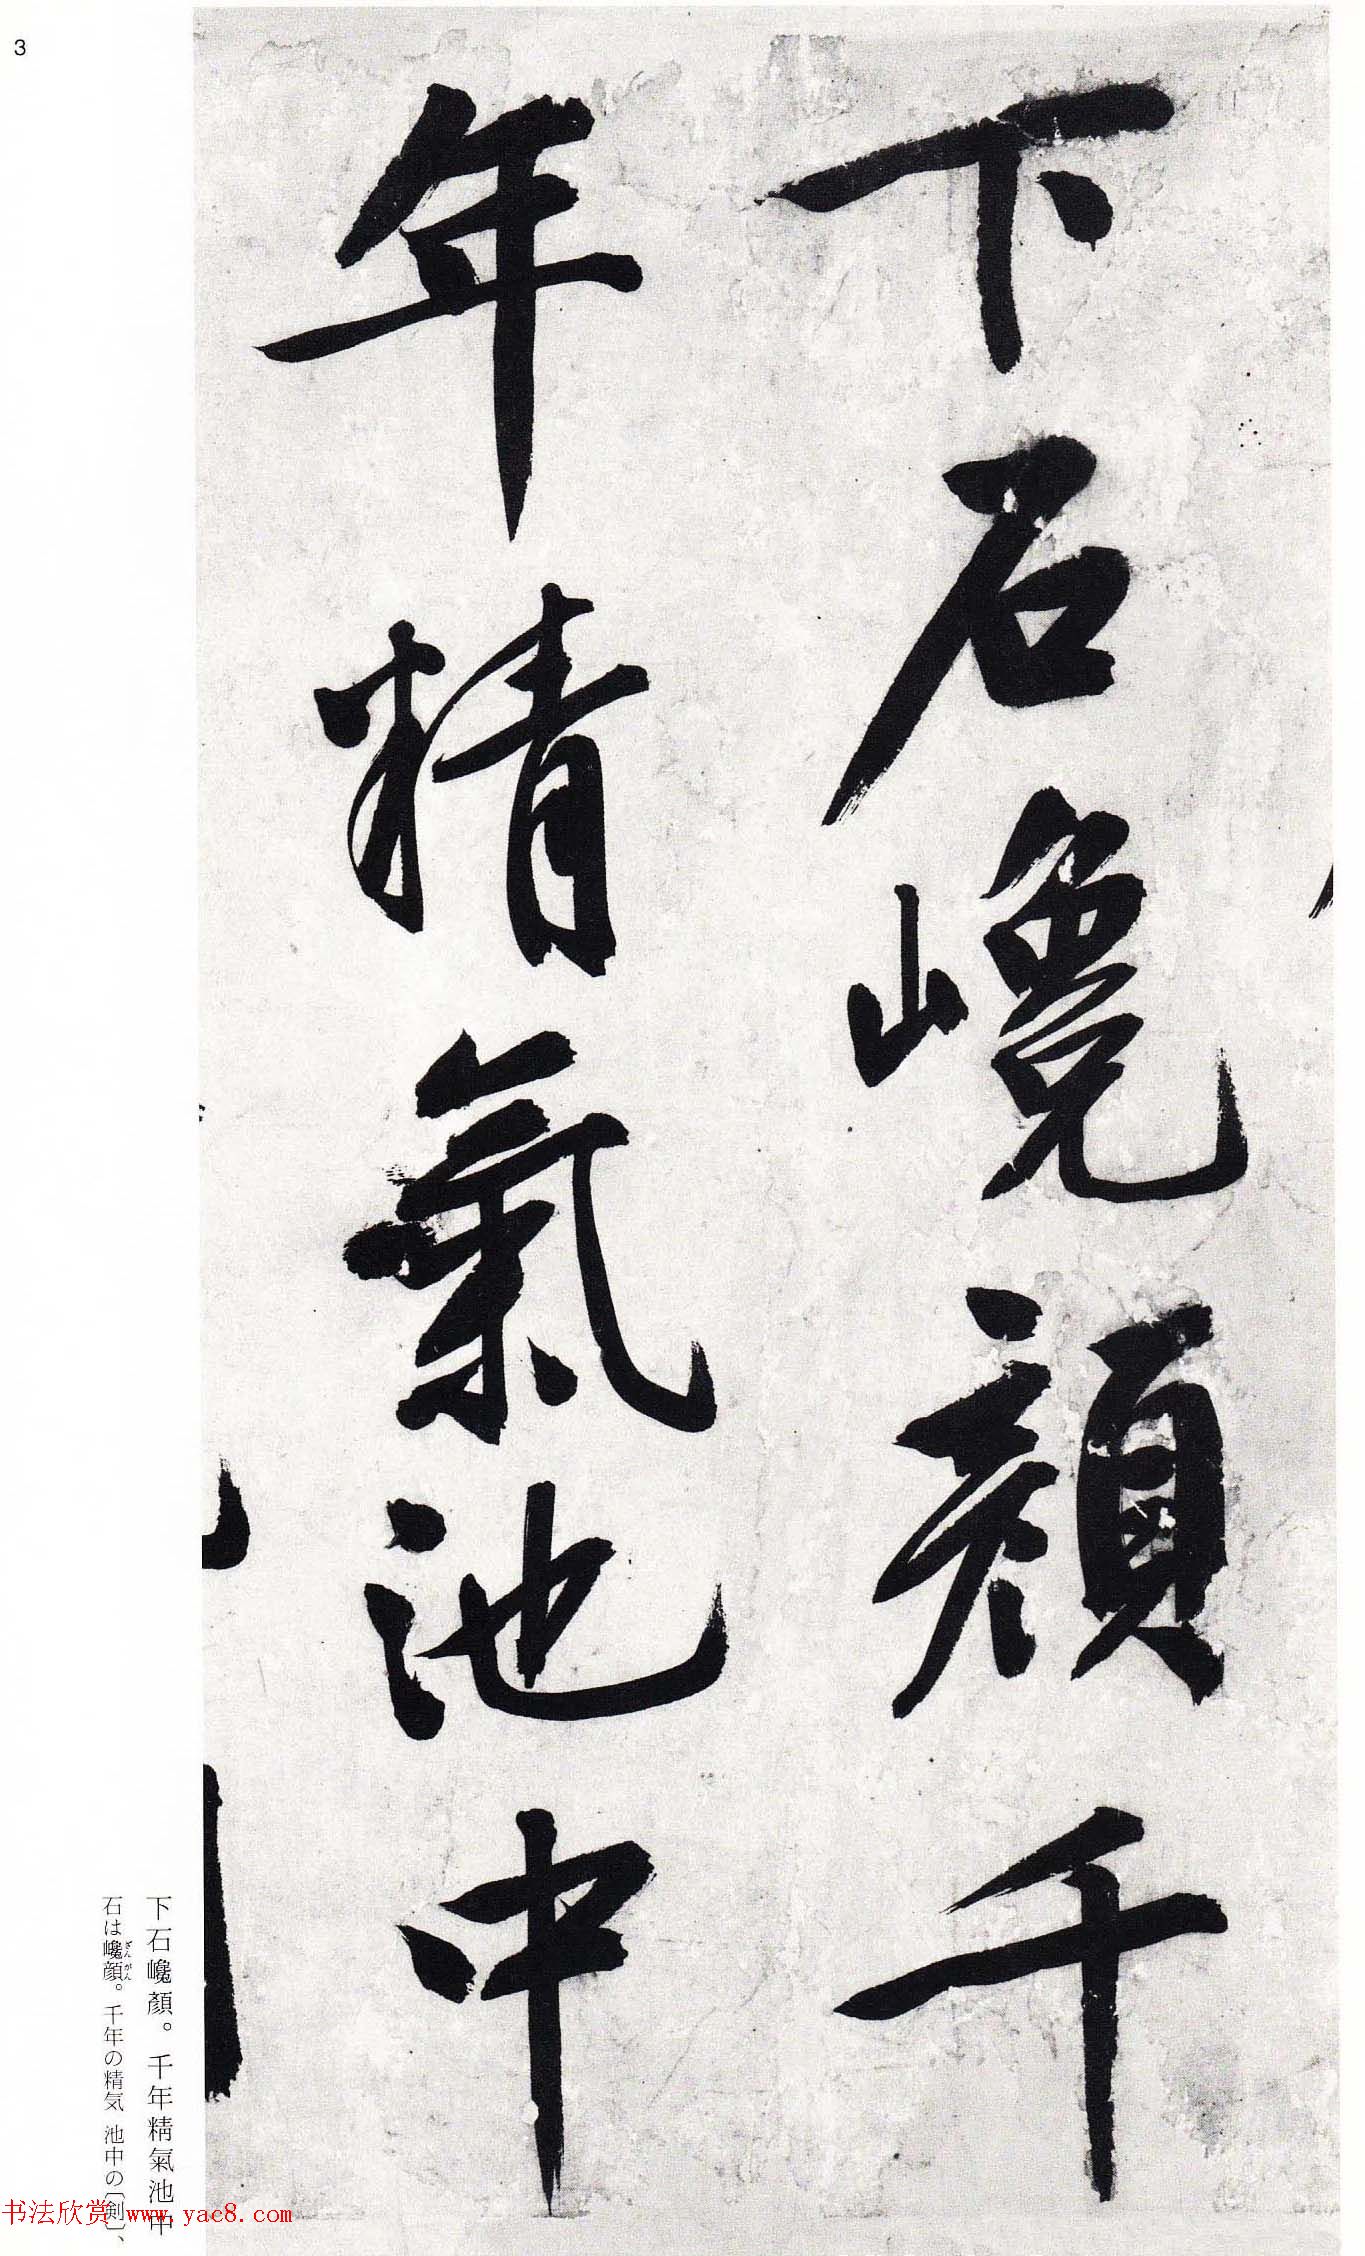 3
下石巉顏千
年精氣池中
下石巉顏。千年精氣池中
石は巉顔。千年の精気 池中の〔剣〕、
ざん がん
书法欣赏 www.yac8.com